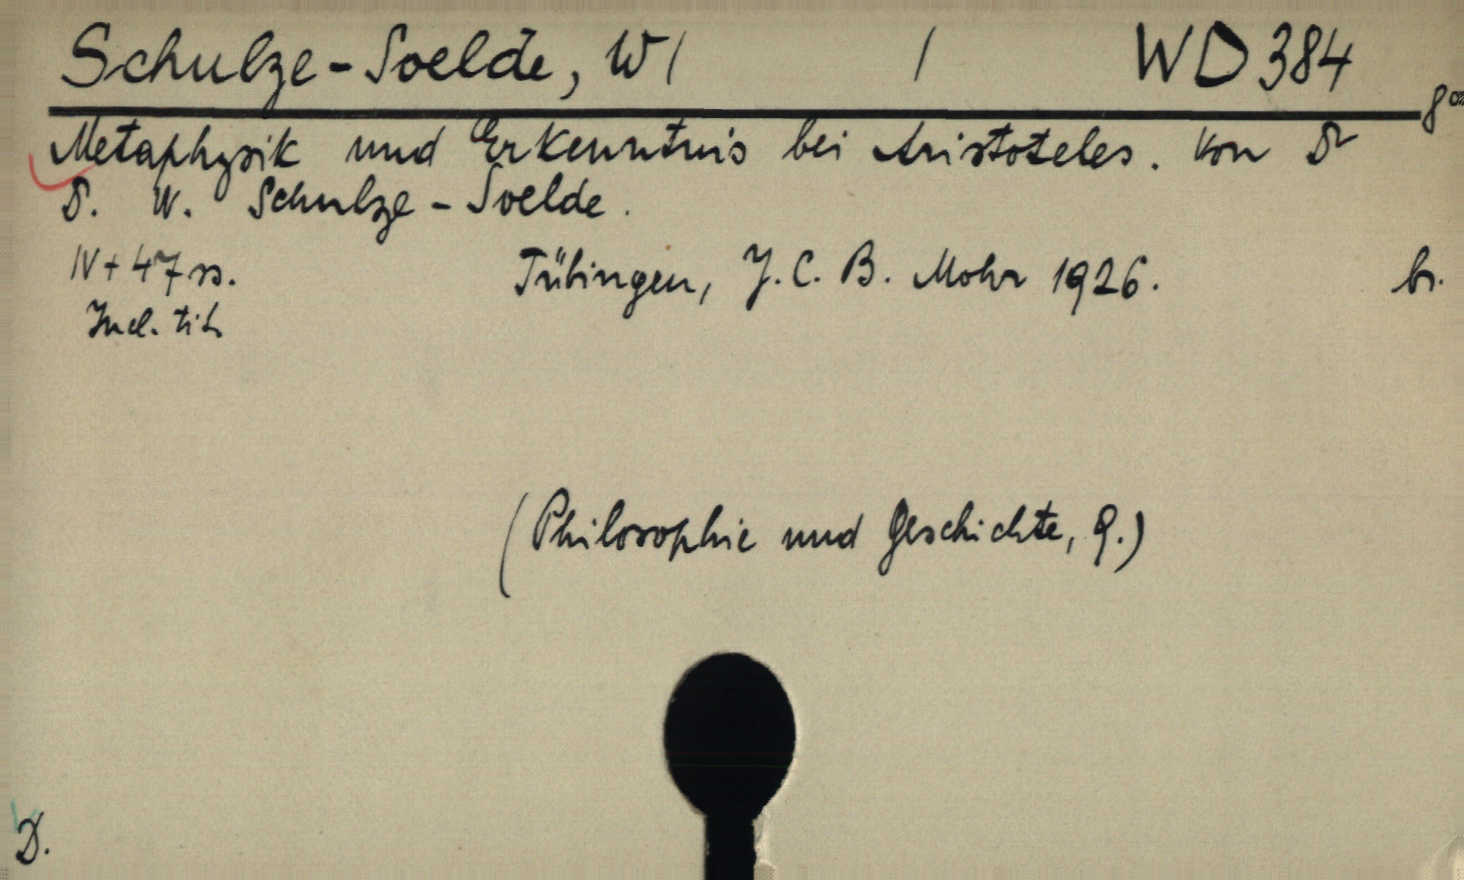 Schulze-Soelde, W/ / WD 384
8°
Metaphysik und Erkenntnis bei Aristoteles. Von Dr
D. W. Schulze-Soelde.
IV + 47 ss. Tübingen, J. C. B. Mohr 1926. br.
Incl. tit.
(Philosophie und Geschichte, 9.)
D.